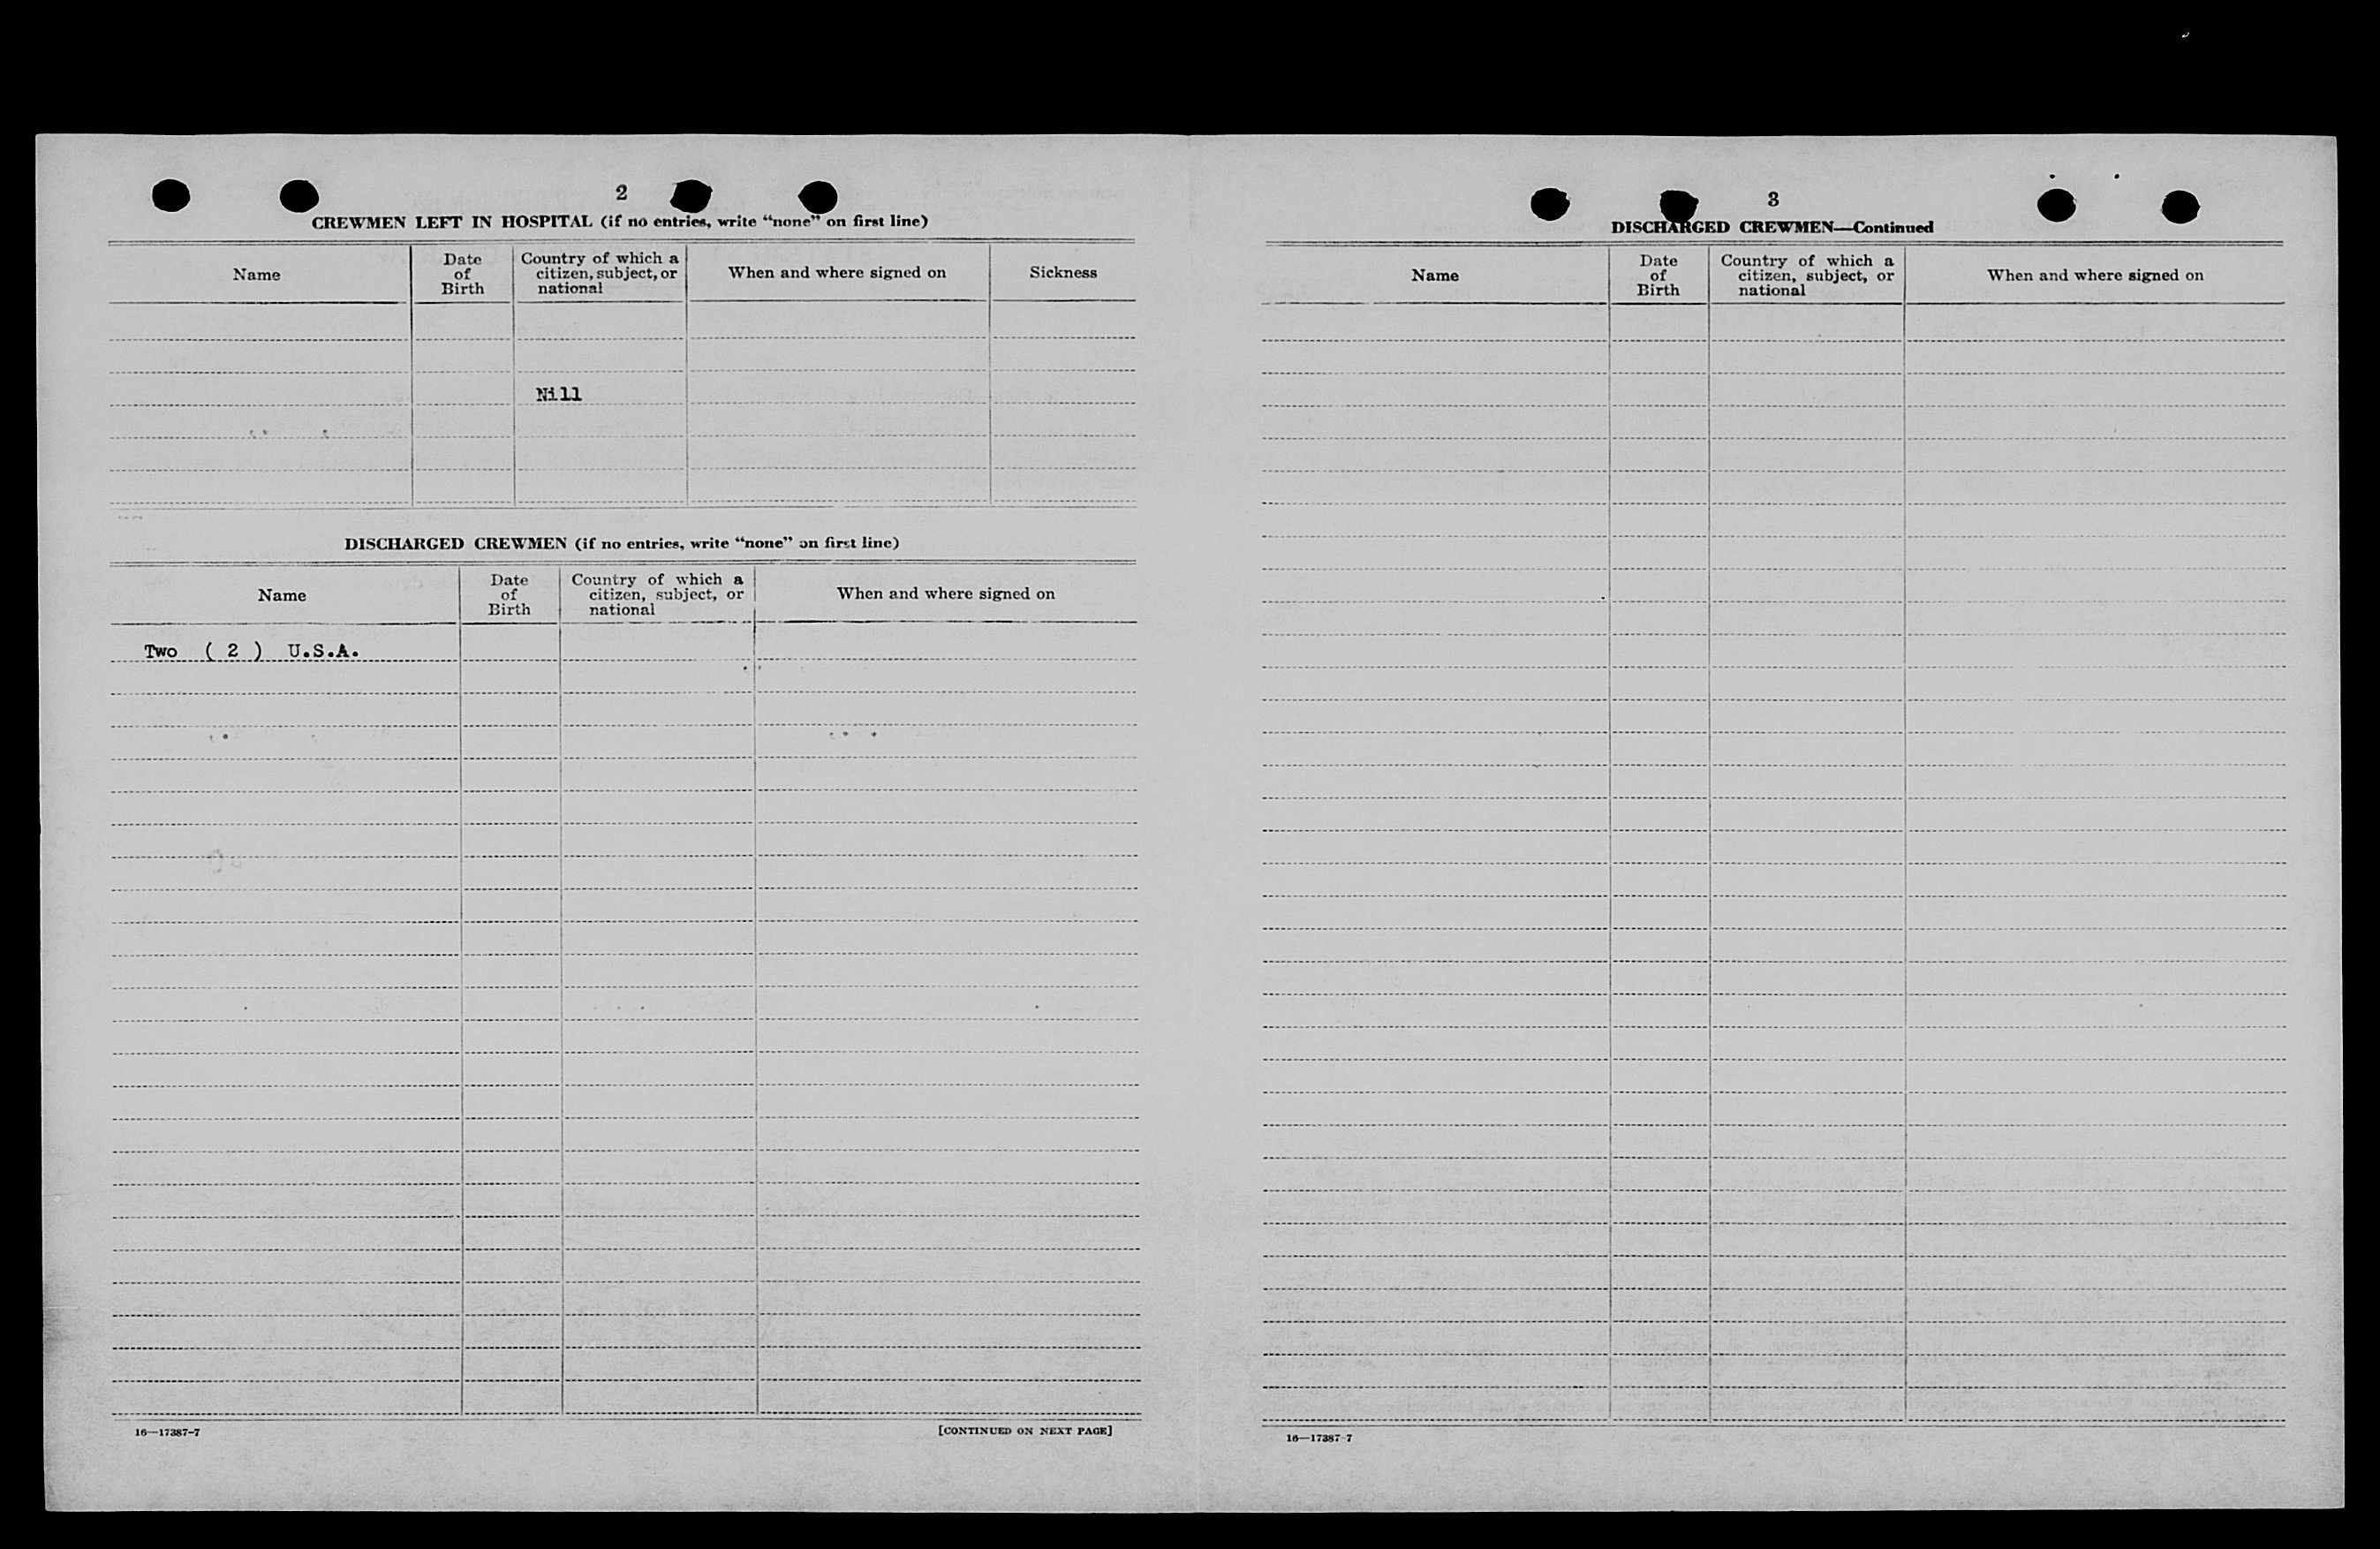 2
CREWMEN LEFT IN HOSPITAL (if no entries, write “none” on first line)
Name
Date of Birth
Country of which a citizen, subject, or national
When and where signed on
Sickness
Nill
DISCHARGED CREWMEN (if no entries, write “none” on first line)
Name
Date of Birth
Country of which a citizen, subject, or national
When and where signed on
Two ( 2 ) U.S.A.
16—17387-7
[CONTINUED ON NEXT PAGE]
3
DISCHARGED CREWMEN—Continued
Name
Date of Birth
Country of which a citizen, subject, or national
When and where signed on
16—17387-7